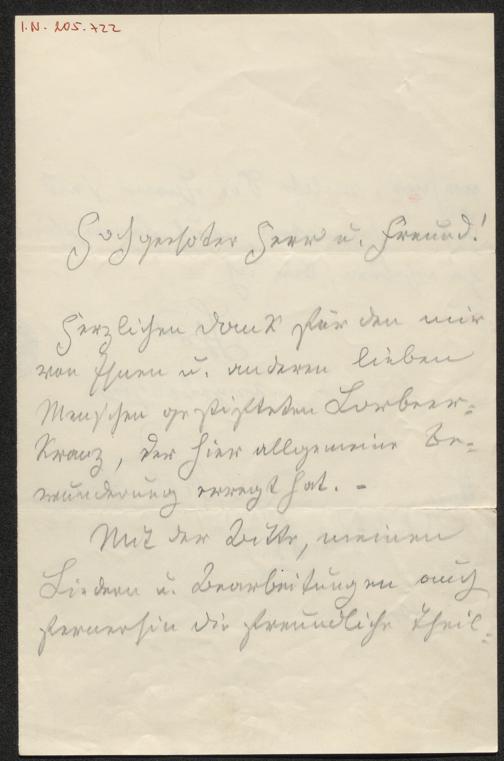 I.N. 205.722
Hochgeehrter Herr u. Freund!
Herzlichen Dank für den mir
von Ihnen u. anderen lieben
Menschen gestifteten Lorbeer-
Kranz, der hier allgemeine Be-
wunderung erregt hat. –
Mit der Bitte, meinen
Liedern u. Bearbeitungen auch
fernerhin die freundliche Theil-